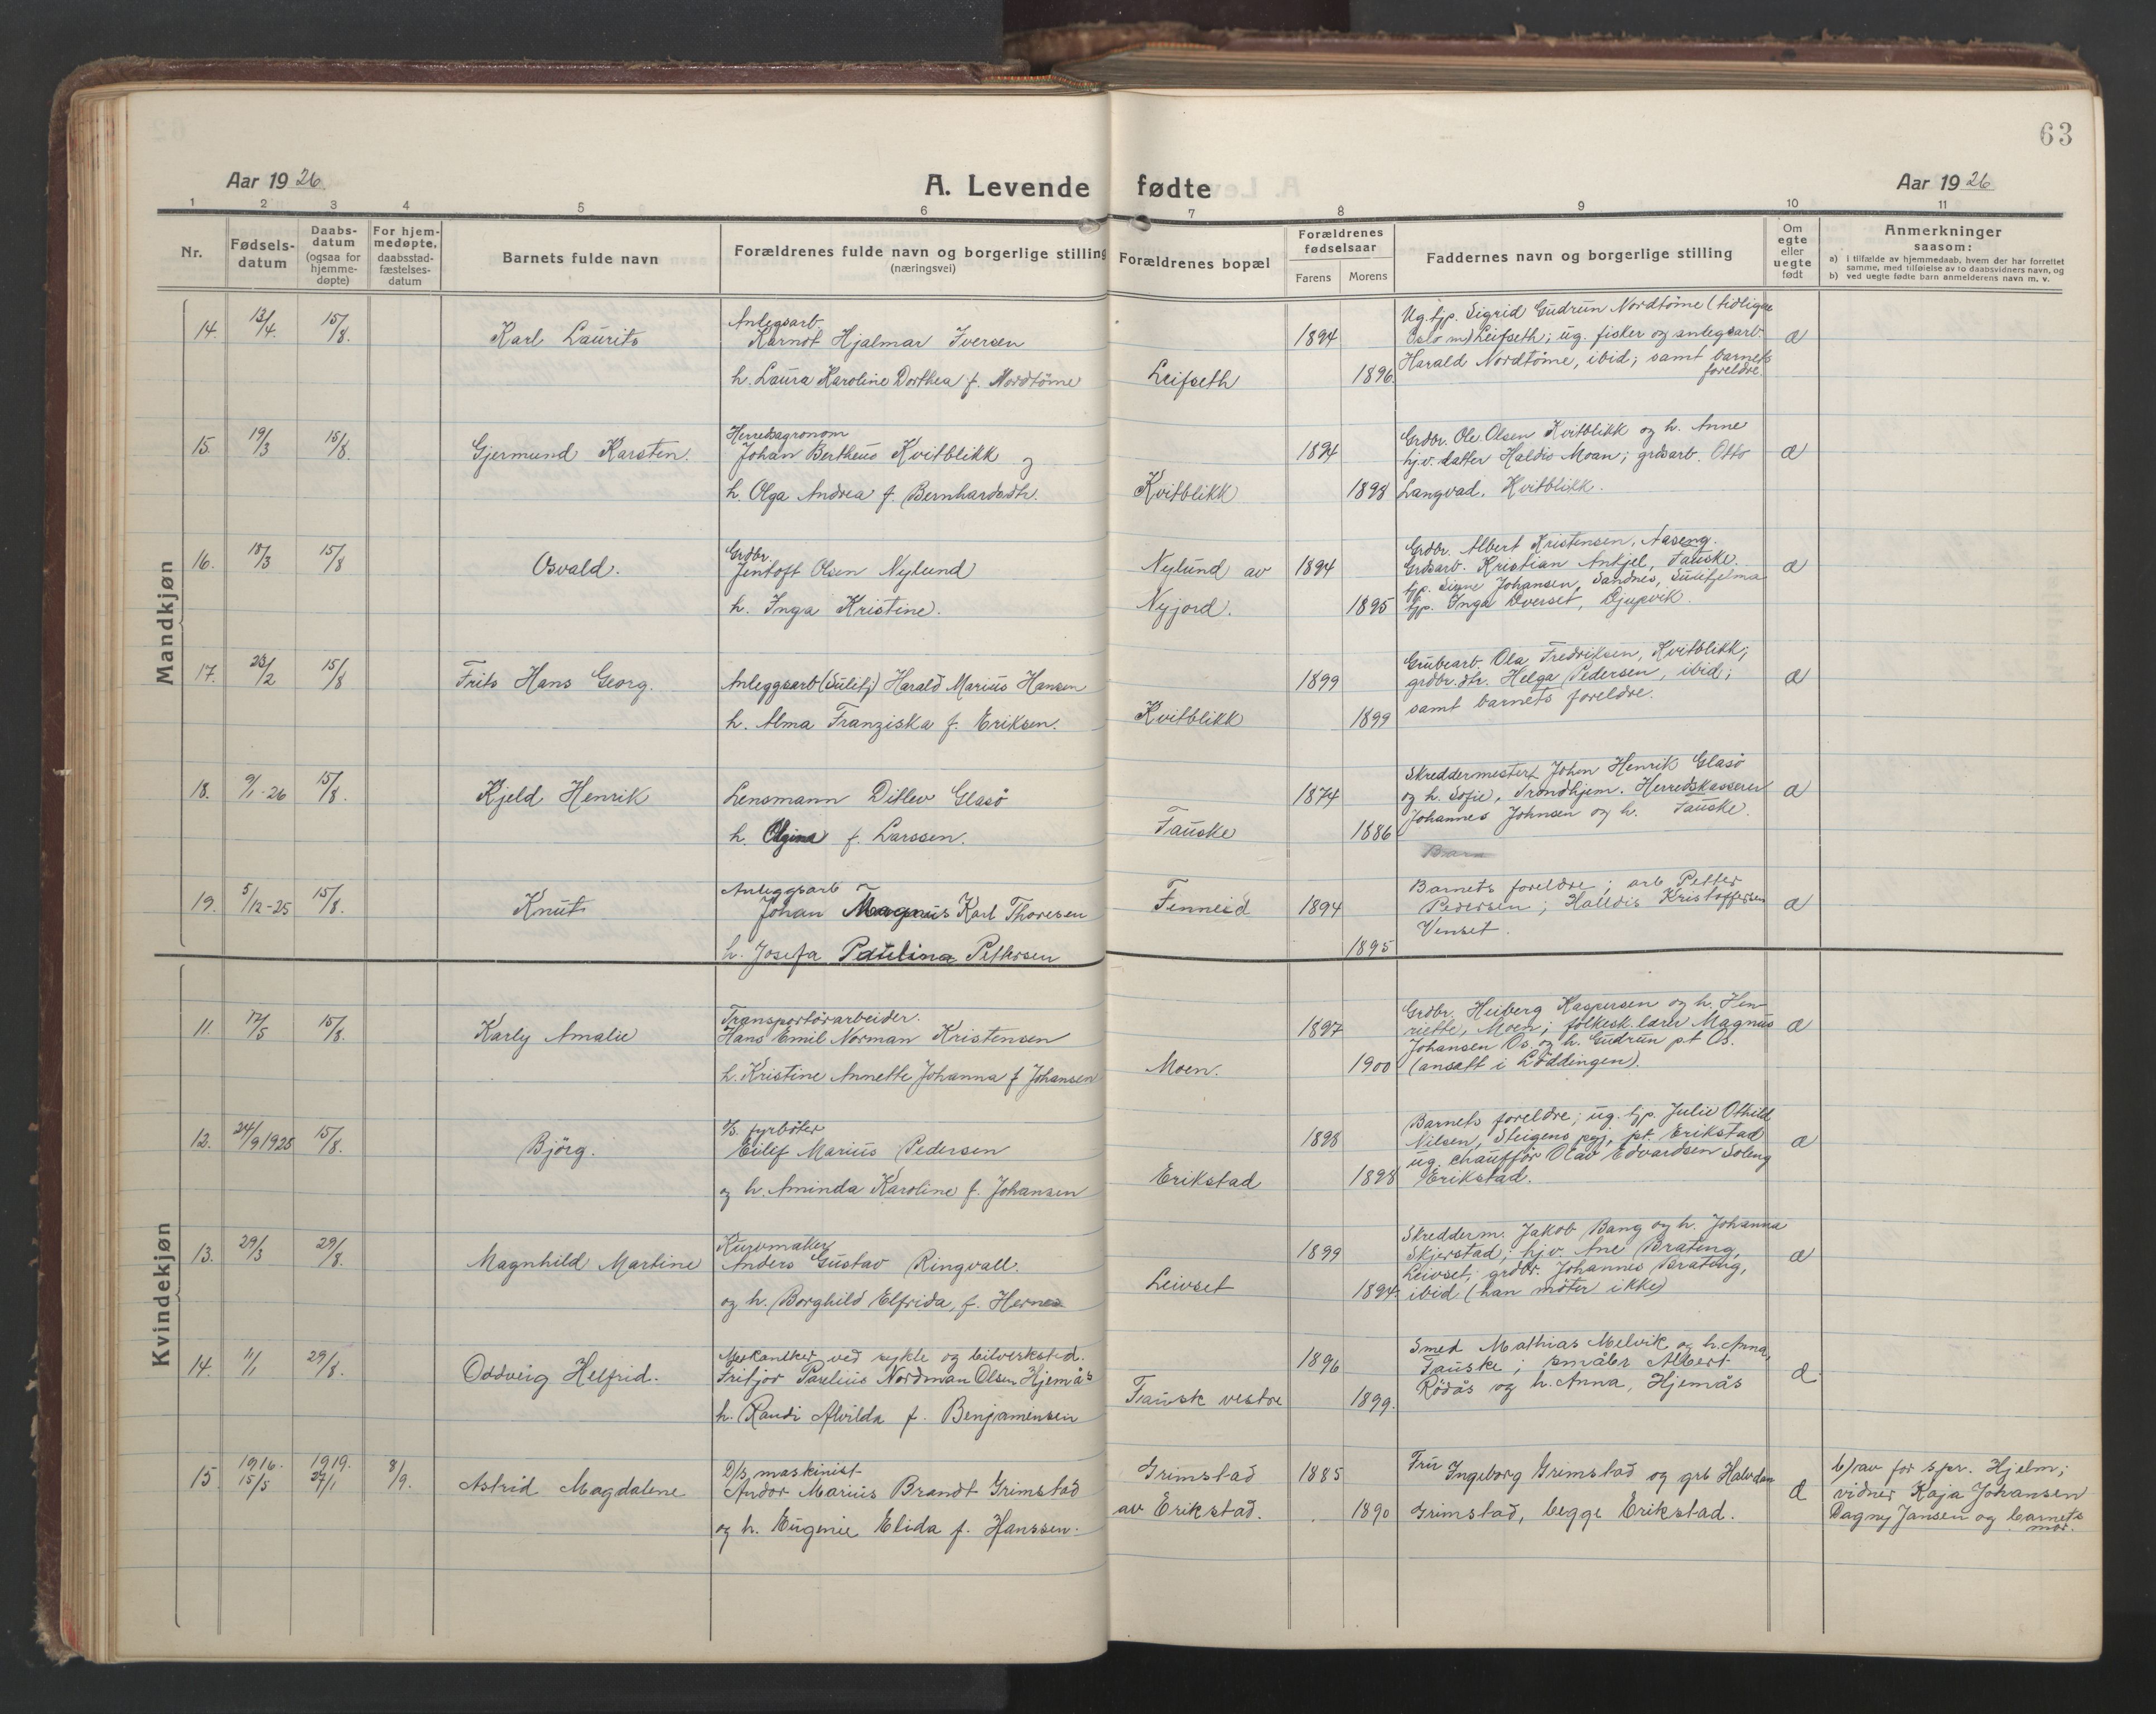 63
Aar 1926.
A. Levende fødte
Aar 1926
1 2 3 4 5 6 7 8 9 10 11
Nr.
Fødsels-
datum
Daabs-
datum
(ogsaa for
hjemme-
døpte)
For hjem-
medøpte,
daabsstad-
fæstelses-
datum
Barnets fulde navn
Forældrenes fulde navn og borgerlige stilling
(næringsvei)
Forældrenes bopæl
Forældrenes
fødselsaar
Farens Morens
Faddernes navn og borgerlige stilling
Om
egte
eller
uegte
født
Anmerkninger
saasom:
a) i tilfælde av hjemmedaab, hvem der har forrettet
samme, med tilføielse av to daabsvidners navn, og
b) ved uegte fødte barn anmelderens navn m. v.
Mandkjøn
14. 13/4. 15/8. Karl Laurits
Anlegsarb.
Karnot Hjalmar Iversen
h. Laura Karoline Dorthea f. Nordtöme
Leifseth
1894
1896.
Ug. tjp. Sigrid Gudrun Nordtöme (tidligere
Oslo m) Leifseth; ug. fisker og anlegsarb.
Harald Nordtöme, ibid; samt barnets
foreldre.
æ
15. 19/3 15/8. Gjermund Karsten.
Herredsagronom
Johan Bertheus Kvitblikk og
h. Olga Andrea f. Bernhardsdtr.
Kvitblikk
1894
1898
Grdbr. Ole Olsen Kvitblikk og h. Anne
hj.v. datter Haldis Moan; grdsarb. Otto
Langvad, Kvitblikk.
æ
16. 18/3 15/8 Osvald.
Grdbr.
Jentoft Olsen Nylund
h. Inga Kristine.
Nylund av
Nyjord.
1894
1895
Grdbr. Albert Kristensen, Aaseng.
Grdsarb. Kristian Ankjel, Fauske.
tjp. Signe Johansen, Sandnes, Sulitjelma
tjp. Inga Överset, Djupvik.
æ
17. 23/2 15/8 Frits Hans Georg.
Anleggsarb (Sulitj) Harald Marius Hansen
h. Alma Franziska f. Eriksen.
Kvitblikk
1899
1899
Grubearb. Ola Fredriksen, Kvitblikk;
grdbr. dtr. Helga Pedersen, ibid;
samt barnets foreldre.
æ
18. 9/1-26 15/8. Kjeld Henrik
Lensmann Ditlev Glasö
h. Olgina f. Larssen.
Fauske
1874
1886
Skreddermester Johan Henrik Glasö
og h. Sofie, Trondhjem. Herredskasserer
Johannes Johnsen og h. Fauske.
æ
19. 5/12-25 15/8. Knut
Anleggsarb
Johan Magnus Karl Thoresen
h. Josefa Paulina Pettersen
Fenneid
1894
1895
Barnets foreldre; arb Petter
Pedersen; Halldis Kristoffersen
Venset.
æ
Kvindekjøn
11. 17/5 15/8. Karly Amalie
Transportörarbeider.
Hans Emil Norman Kristensen
h. Kristine Annette Johanna f Johansen
Moen.
1897
1900
Grdbr. Heiberg Kaspersen og h. Hen-
riette, Moen; folkesk. lærer Magnus
Johansen Os. og h. Gudrun pt Os.
(ansatt i Löddingen).
æ
12. 24/9 1925 15/8. Björg.
D/S. fyrböter
Eilif Marius Pedersen
og h. Aminda Karoline f. Johansen
Erikstad
1898
1898
Barnets foreldre; ug. tjp. Julie Othild
Nilsen, Steigens pgj, pt. Erikstad
ug. chaufför Olav Edvardsen Soleng
Erikstad.
æ
13. 29/3 29/8. Magnhild Martine
Kurvmaker
Anders Gustav Ringvall.
og h. Borghild Elfrida, f. Hernes
Leivset
1899
1894.
Skredderm. Jakob Bang og h. Johanna
Skjerstad; hj.v. Ane Brateng,
Leivset; grdbr. Johannes Brateng,
ibid (han möter ikke)
æ
14. 11/1 29/8. Oddveig Helfrid.
Mekaniker ved sykle og bilverksted.
Fritjor Paselius Nordman Olsen Hjemås
h. Randi Alvilda f. Benjaminsen
Fausk vestre
1896
1899.
Smed Mathias Melvik og h. Anna,
Fauske; småbr Albert
Rödås og h. Anna, Hjemås
æ.
15. 1916. 15/5 1919. 27/1 8/9. Astrid Magdalene
D/S maskinist
Andor Marius Brandt Grimstad
og h. Eugenie Elida f. Hanssen.
Grimstad
av Erikstad.
1885
1890
Fru Ingeborg Grimstad og grb Halvdan
Grimstad, begge Erikstad.
æ
b) av for spr. Hjelm;
vidner Kaja Johansen
Dagny Jansen og barnets
mor.